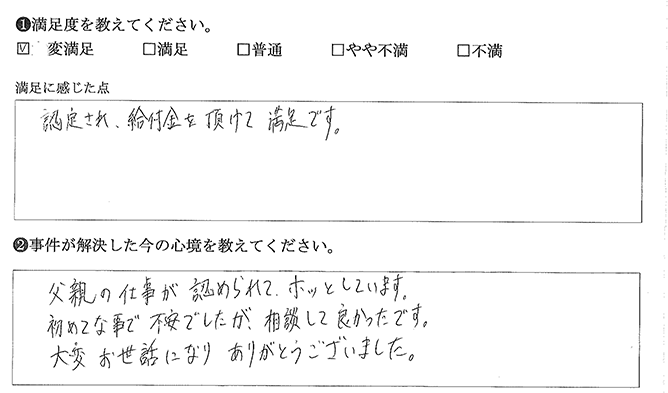 ❶満足度を教えてください。
☑ 変満足 □満足 □普通 □やや不満 □不満
満足に感じた点
認定され、給付金を頂けて満足です。
❷事件が解決した今の心境を教えてください。
父親の仕事が認められて、ホッとしています。
初めてな事で不安でしたが、相談して良かったです。
大変お世話になりありがとうございました。